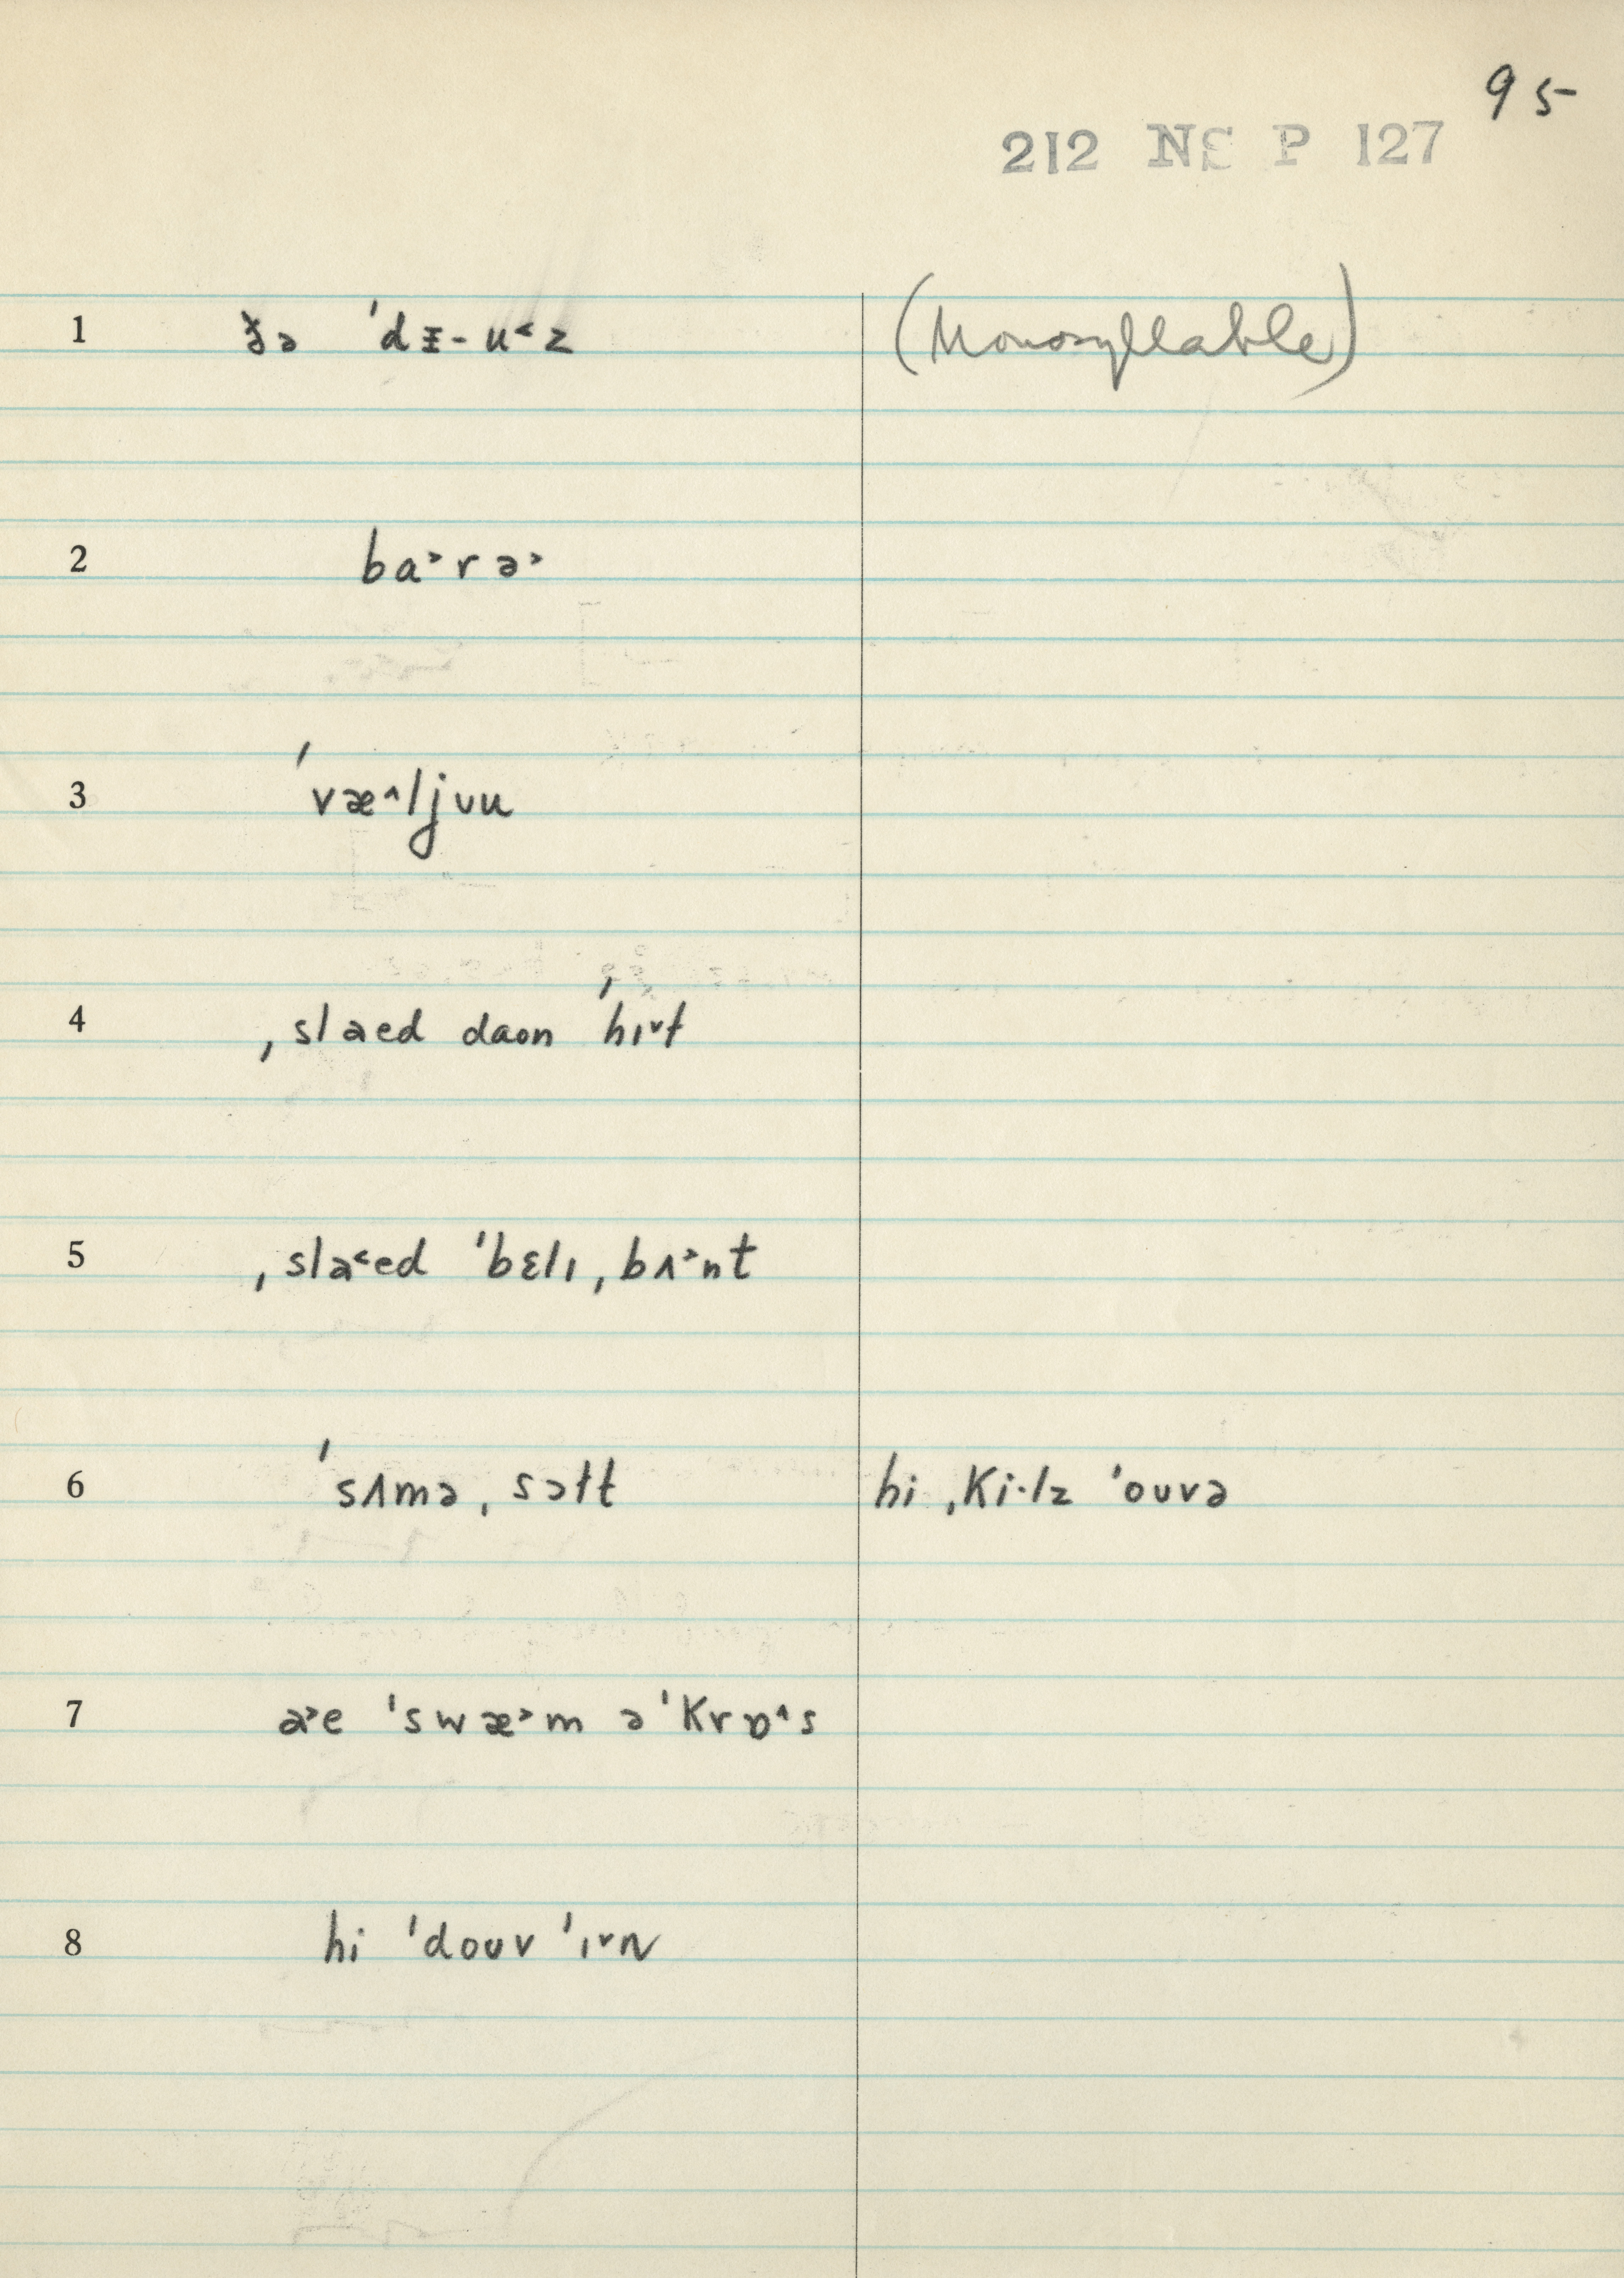 95
212 NE P 127
1 ðə ˈdɪ̵-u˂z (Monosyllable)
2 ba˃rə˃
3 ˈvæ˄ljʊu
4 ˌslaed daʊn ˈhɪ˅ɫ
5 ˌsla˂ed ˈbɛlɪˌbʌ˃nt
6 ˈsʌməˌsɔɫt hi ˌki·lz ˈoʊvə
7 a˃e ˈswæ˃m əˈkrɒ˄s
8 hi ˈdoʊv ˈɪ˅n